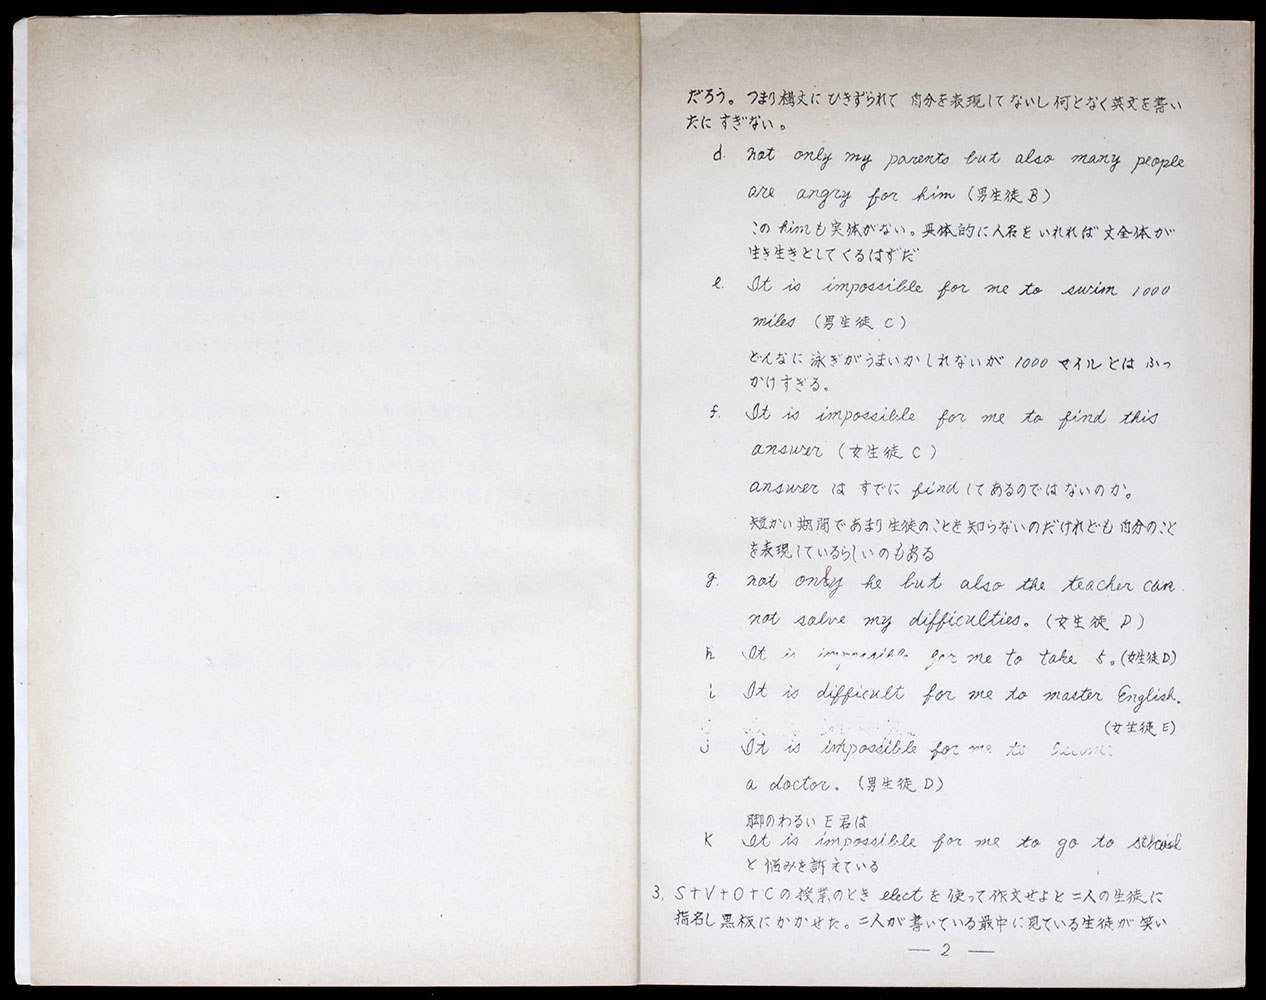 だろう。つまり構文にひきずられて 自分を表現してないし何となく英文を書い
たにすぎない。
d. not only my parents but also many people
are angry for him (男生徒 B)
この him も実体がない。具体的に人名をいれれば文全体が
生き生きとしてくるはずだ
e. It is impossible for me to swim 1000
miles (男生徒 C)
どんなに泳ぎがうまいかしれないが 1000 マイルとは ふっ
かけすぎる。
f. It is impossible for me to find this
answer (女生徒 C)
answer は すでに find してあるのではないのか。
短かい期間であまり生徒のことを知らないのだけれども自分のこと
を表現しているらしいのもある
g. not only he but also the teacher can
not solve my difficulties. (女生徒 D)
h It is impossible for me to take 5。(女生徒D)
i It is difficult for me to master English.
(女生徒 E)
j It is impossible for me to become
a doctor. (男生徒 D)
脚のわるい E君は
k It is impossible for me to go to school
と悩みを訴えている
3. S+V+O+C の授業のとき elect を使って作文せよと二人の生徒に
指名し黒板にかかせた。二人が書いている最中に見ている生徒が笑い
— 2 —